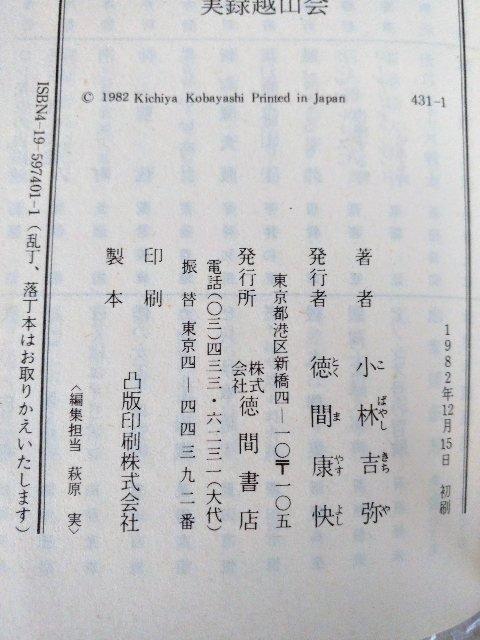 実録越山会
© 1982 Kichiya Kobayashi Printed in Japan 431-1
1982年12月15日 初刷
著者 小林吉弥
こばやしきちや
発行者 徳間康快
とくまやすよし
東京都港区新橋四—一〇〒一〇五
発行所 株式会社 徳間書店
電話(〇三)四三三・六二三一(大代)
振替 東京四—四四三九二番
印刷 凸版印刷株式会社
製本
<編集担当 萩原 実>
ISBN4-19-597401-1(乱丁、落丁本はお取りかえいたします)